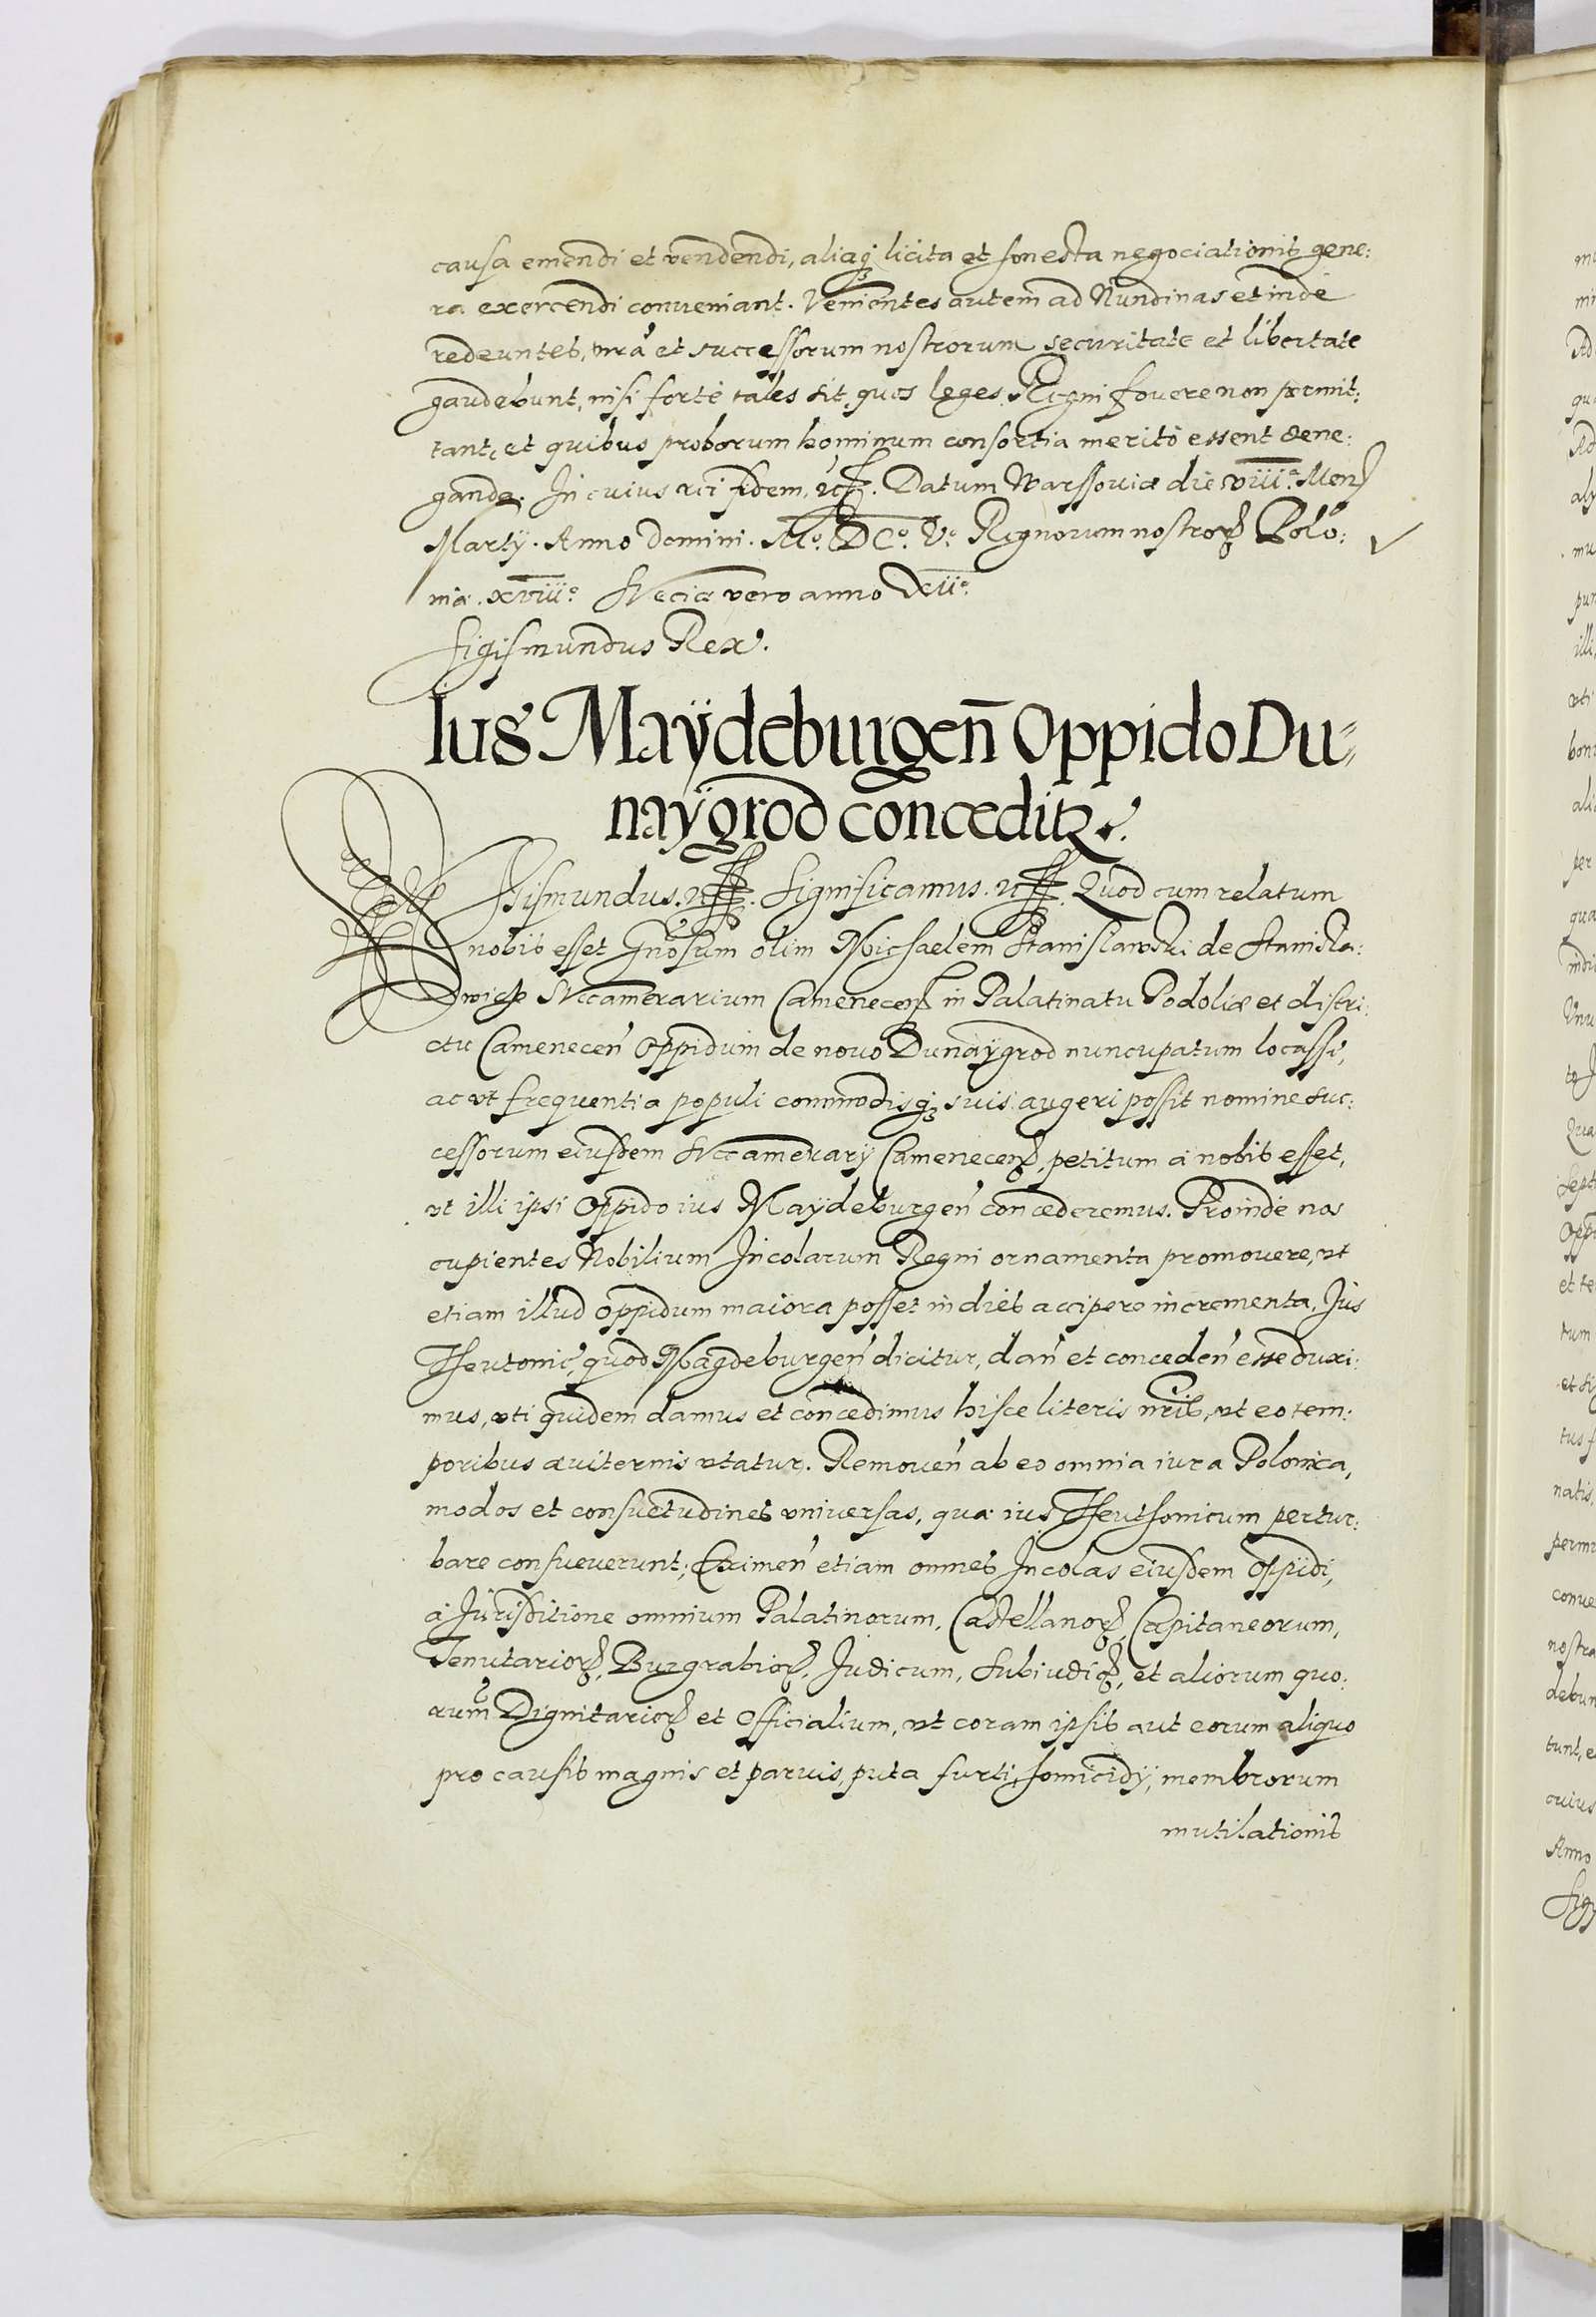 causa emendi et vendendi, aliaq; licita et honesta negociationis gene:
ra exercendi conveniant. Venientes autem ad Nundinas et inde
redeuntes, nrã et successorum nostrorum securitate et libertate
gaudebunt, nisi forte tales sit, quos leges Regni fovere non permit:
tant, et quibus proborum hominum consortia merito essent dene:
ganda. In cuius rei fidem, etc. Datum Warssoviæ die VIII.ª Mens
Martÿ. Anno Domini. Mº. DCº. Vº. Regnorum nostror Polo:
niæ. XVIIIº. Sveciæ vero anno XIIº.
Sigismundus Rex.
Ius Maÿdeburgen̄ Oppido Du=
naÿgrod conceditr.
Sigismundus. etc. Significamus. etc. Quod cum relatum
nobis esset Gnosum olim Michaelem Stanislawski de Stanisla:
Dwicze Succamerarium Camenecens in Palatinatu Podoliæ et distri:
ctu Camenecen̄ Oppidum de novo Dunaÿgrod nuncupatum locasse,
ac ut frequentia populi commodisq; suis augeri possit nomine suc:
cessorum eiusdem Succamerarÿ Camenecen, petitum a nobis esset,
ut illi ipsi Oppido ius Maÿdeburgen̄ concederemus. Proinde nos
cupientes Nobilium Incolarum Regni ornamenta promovere, ut
etiam illud oppidum maiora posset in dies accipere incrementa, Jus
Theutonic̄, quod Magdeburgen̄ dicitur, dan̄ et conceden̄ esse duxi:
mus, uti quidem damus et concedimus hisce literis nris, ut eo tem:
poribus æviternis utatur. Removen̄ ab eo omnia iura Polonica,
modos et consuetudines universas, quæ ius Theuthonicum pertur:
bare consueverunt; Eximen̄ etiam omnes Incolas eiusdem oppidi,
a Jurisditione omnium Palatinorum, Castellanor, Capitaneorum,
Tenutarior, Burgrabior, Judicum, Subiudic, et aliorum quo:
rumc Dignitarior et Officialium, ut coram ipsis aut eorum aliquo
pro causis magnis et parvis, puta furti, homicidÿ, membrorum
mutilationis